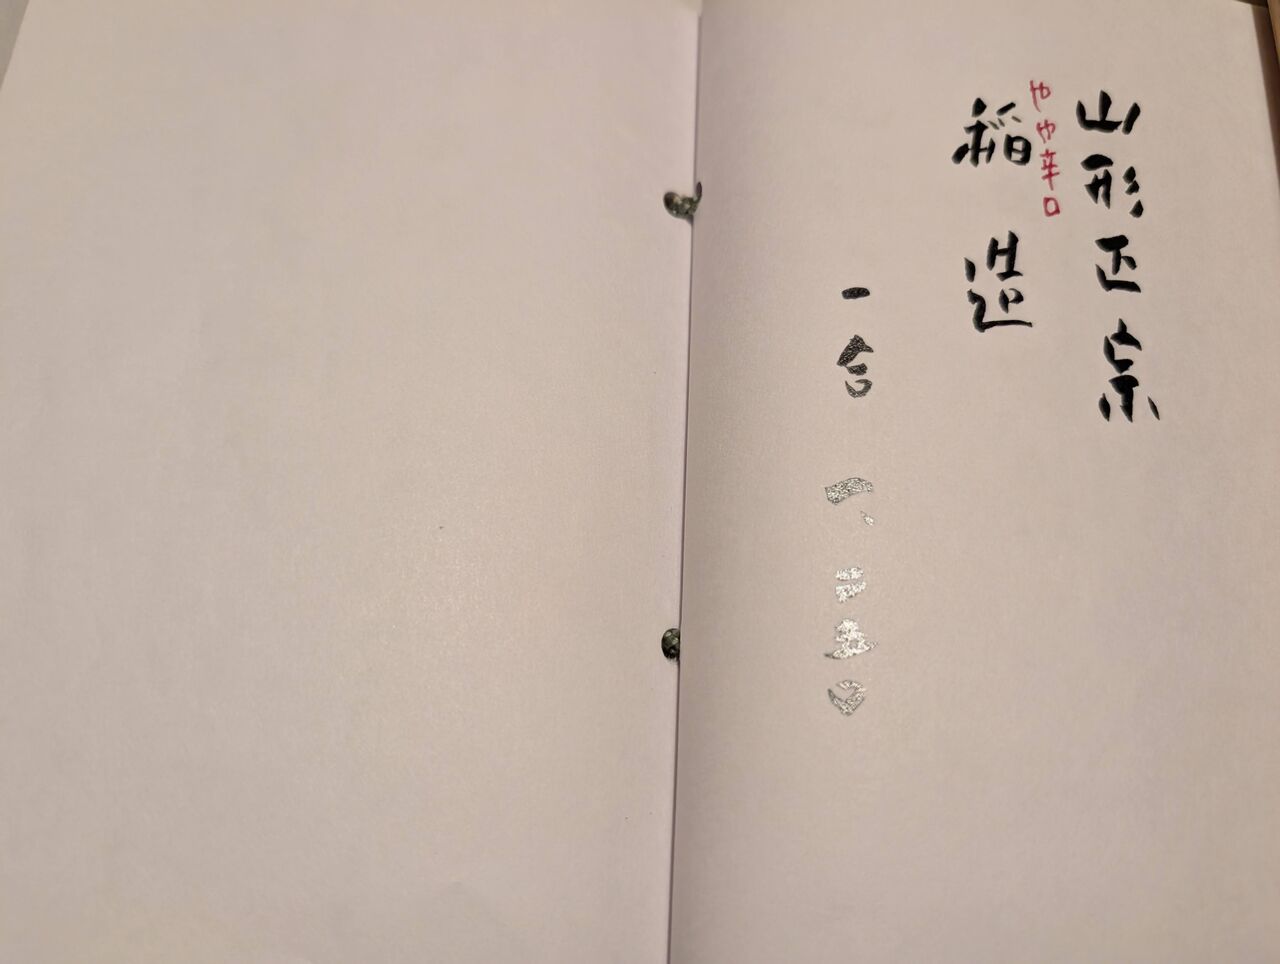 山形正宗
やや辛口
稲造
一合 一、二五〇